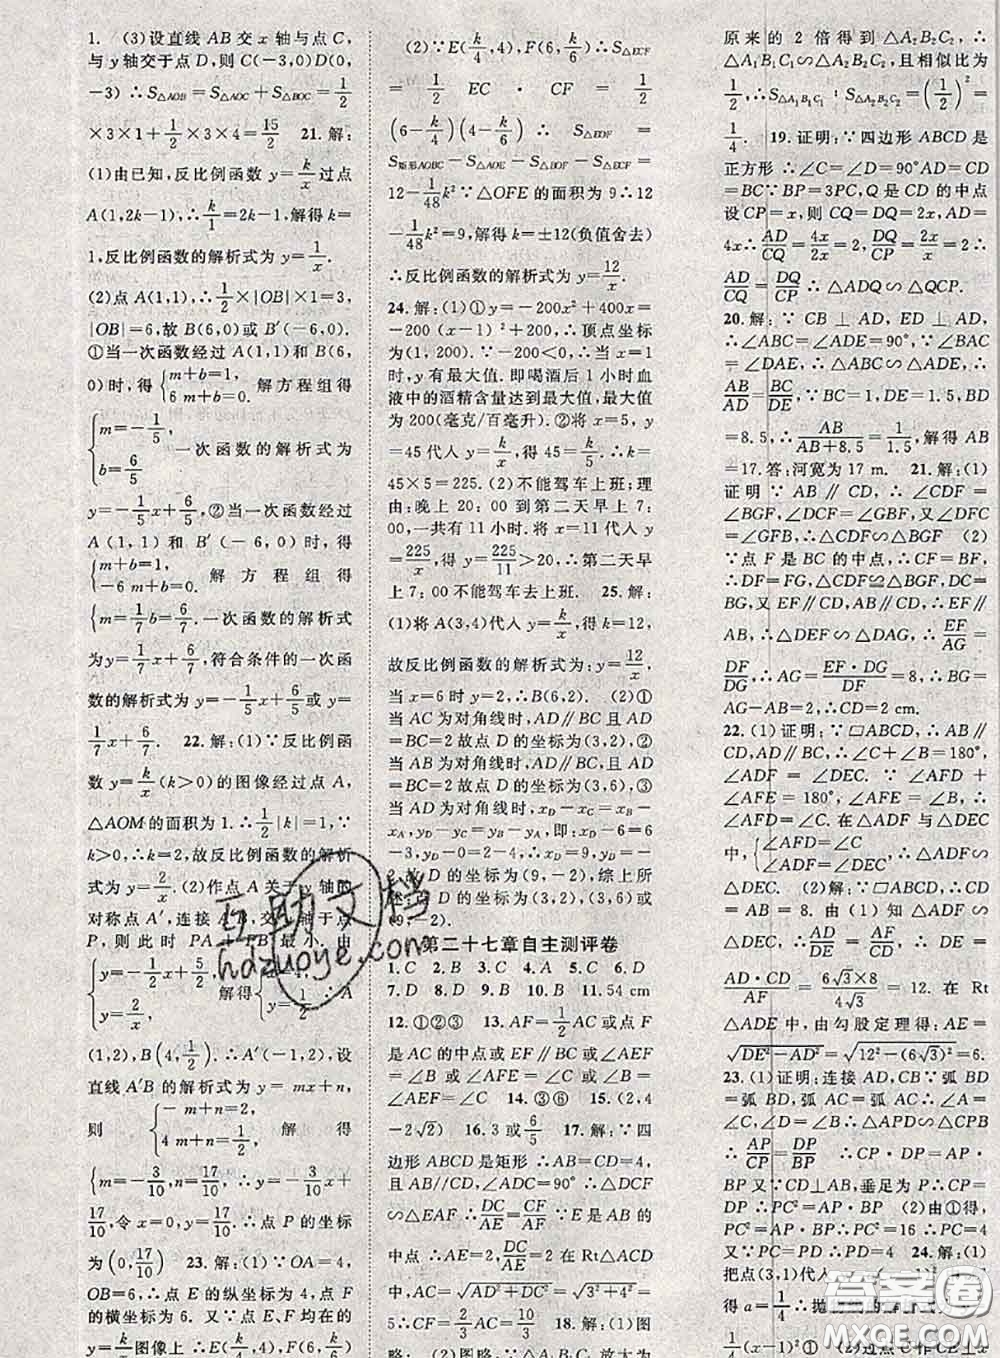 1. (3)设直线 AB 交 x 轴与点 C,
与 y 轴交于点 D,则 C(-3,0)D(0,
-3) ∴S△AOB=S△AOC+S△BOC=1/2
×3×1+1/2×3×4=15/2 21. 解:
(1)由已知,反比例函数 y=k/x 过点
A(1,2k-1),∴k/1=2k-1,解得 k=
1,反比例函数的解析式为 y=1/x.
(2)点 A(1,1),∴1/2×|OB|×1=3,
|OB|=6,故 B(6,0)或 B′(-6,0).
①当一次函数经过 A(1,1)和 B(6,
0)时,得{m+b=1, 6m+b=0. 解方程组得
{m=-1/5, b=6/5 一次函数的解析式为
y=-1/5x+6/5,②当一次函数经过
A(1,1)和 B′(-6,0)时,得
{m+b=1, -6m+b=0. 解方程组得
{m=1/7b=6/7. 一次函数的解析式
为 y=1/7x+6/7,符合条件的一次函
数的解析式为 y=-1/5x+6/5或 y=
1/7x+6/7. 22. 解:(1)∵反比例函
数 y=k/x(k>0)的图像经过点 A,
△AOM 的面积为 1.∴1/2|k|=1,∵
k>0,∴k=2,故反比例函数的解析
式为 y=2/x.(2)作点 A 关于 y 轴的
对称点 A′,连接 A′B,交 y 轴于点
P,则此时 PA+PB 最小.由
{y=-1/2x+5/2, y=2/x, 解得{x=4, y=1/2 ∴A
(1,2),B(4,1/2).∴A′(-1,2),设
直线 A′B 的解析式为 y=mx+n,
则 {-m+n=2, 4m+n=1/2, 解得
{m=-3/10, n=17/10, ∴y=-3/10x+
17/10,令 x=0,∴点 P 的坐标
为(0,17/10) 23. 解:(1)∵OA=4,
OB=6,∴点 E 的纵坐标为 4,点 F
的横坐标为 6. 又∵点 E、F 均在
y=k/x图像上,∴E(k/4,4),F(6,k/6)
(2)∵E(k/4,4),F(6,k/6)∴S△ECF
=1/2 EC·CF=1/2
(6-k/4)(4-k/6) ∴S△EOF=
S矩形AOBC-S△AOE-S△BOF-S△ECF=
12-1/48k²∵△OFE 的面积为 9∴12
-1/48k²=9,解得 k=±12(负值舍去)
∴反比例函数的解析式为 y=12/x.
24. 解:(1)①y=-200x²+400x=
-200(x-1)²+200,∴顶点坐标
为(1,200).∵-200<0,∴当 x=1
时,y 有最大值.即喝酒后 1 小时血
液中的酒精含量达到最大值,最大值
为 200(毫克/百毫升).②将 x=5,y=
45代人 y=k/x,得 45=k/5.∴k=
45×5=225.(2)不能驾车上班;理
由:晚上 20:00 到第二天早上 7:
00,一共有 11 小时.将 x=11 代人 y
=225/x,得 y=225/11>20,∴第二天早
上 7:00 不能驾车去上班. 25. 解:
(1)将 A(3,4)代人 y=k/x,得 k=12,
故反比例函数的解析式为:y=12/x
当 x=6 时 y=2,∴B(6,2). (2)①
当 AC 为对角线时,AD∥BC 且 AD
=BC=2 故点 D 的坐标为(3,2),②
当 AB 为对角线时,AD∥BC 且 AD
=BC=2 故点 D 的坐标为(3,6),③
当 AD 为对角线时,xD-xC=xB-
xA,yD-yC=yB-yA,即:xD-6=6
-3,
-2,故 D 的坐标为(9,-2),综上所
述:点 D 的坐标为(3,2),(3,6)或
(9,-2).
第二十七章自主测评卷
1. C 2. B 3. A 4. D 5. C 6. D
7. D 8. D 9. B 10. B 11. 54 cm
12. ①②③ 13. AF=1/2AC 或点 F
是 AC 的中点或 EF∥BC 或∠AFE
=∠B 或∠AFE=∠C 或∠B=∠
AEF=∠C 14. ③⑥ 15. (2,4
-2√2) 16. 3 或6/5 17. 解:∵四
边形 ABCD 是矩形 ∴AB=CD=4,
AB//CD,∠ADC=90° ∴△DCF
∽△EAF ∴DC/AE=CF/AF ∵E 是 AB 的
中点 ∴AE=2,DC/AE=2 在 Rt△ADC
中,AC=√(AD²+DC²)=√(3²+4²)=
5∴CF=2/3AC=10/3 18. 解:(1)图
略; (2)图略,∵将△A₁B₁C₁放大为
原来的 2 倍得到△A₂B₂C₂,∴
△A₁B₁C₁∽△A₂B₂C₂,且相似比为
1/2,∴S△A₁B₁C₁:S△A₂B₂C₂=(1/2)²=
1/4. 19. 证明:∵四边形 ABCD 是
正方形 ∴∠C=∠D=90°AD=CD
=BC∵BP=3PC,Q 是 CD 的中点
设 CP=x,则 CQ=DQ=2x,AD=
4x∴AD/CQ=4x/2x=2,DQ/CP=2x/x=2∴
AD/CQ=DQ/CP,∴△ADQ∽△QCP.
20. 解:∵CB⊥AD,ED⊥AD,
∴∠ABC=∠ADE=90°,∵∠BAC
=∠DAE,∴△ABC∽△ADE,∴
AB/AD=BC/DE∵BC=1,DE=1.5,BD
=8.5,∴AB/(AB+8.5)=1/1.5,解得 AB
=17.答:河宽为 17 m. 21. 解:(1)
证明 ∵AB∥CD,∴∠CDF=
∠BGF,∠DCF=∠GBF,又∠DFC
=∠GFB,∴△CDF∽△BGF (2)
∵点 F 是 BC 的中点,∴CF=BF,
∴DF=FG,△CDF≌△BGF,DC=
BG,又 EF∥CD,AB∥CD,∴EF∥
AB,∴△DEF∽△DAG,∴EF/AG=
DF/DG,∴AG=EF·DG/DF=8,∴BG=
AG-AB=2,∴CD=2 cm.
22. (1)证明:∵▱ABCD,∴AB∥
CD,AD∥BC,∴∠C+∠B=180°,
∠ADF=∠DEC. ∵∠AFD+
∠AFE=180°,∠AFE=∠B,∴
∠AFD=∠C.在△ADF 与△DEC
中,{∠AFD=∠C ∠ADF=∠DEC,∴△ADF∽
△DEC. (2)解:∵▱ABCD,∴CD
=AB=8. 由(1)知△ADF∽
△DEC,∴AD/DE=AF/CD,∴DE=
AD·CD/AF=6√3×8/4√3=12. 在 Rt
△ADE 中,由勾股定理得:AE=
√(DE²-AD²)=√(12²-(6√3)²)=6.
23. (1)证明:连接 AD,CB∵弧 BD
=弧 BD,弧 AC=弧 AC∴∠A=
∠C,∠D=∠B,∴△APD∽△CPB
∴AP/CP=DP/BP ∴CP·DP=AP·
BP 又∵CD⊥AB,垂足为 P ∴CP
=DP,∴PC²=AP·BP(2)由①得,
PC²=AP·BP∴PC²=16∴PC=4
又∵PC=PD ∴CD=8 24. 解:(1)
把点(3,1)代人
得 a=1/4∴抛物线的解析式为 y=
1/4(x-1)² (2)过点 C 作 CE⊥x
互助文档
hdzuoye.com
答案圈
MXQE.COM